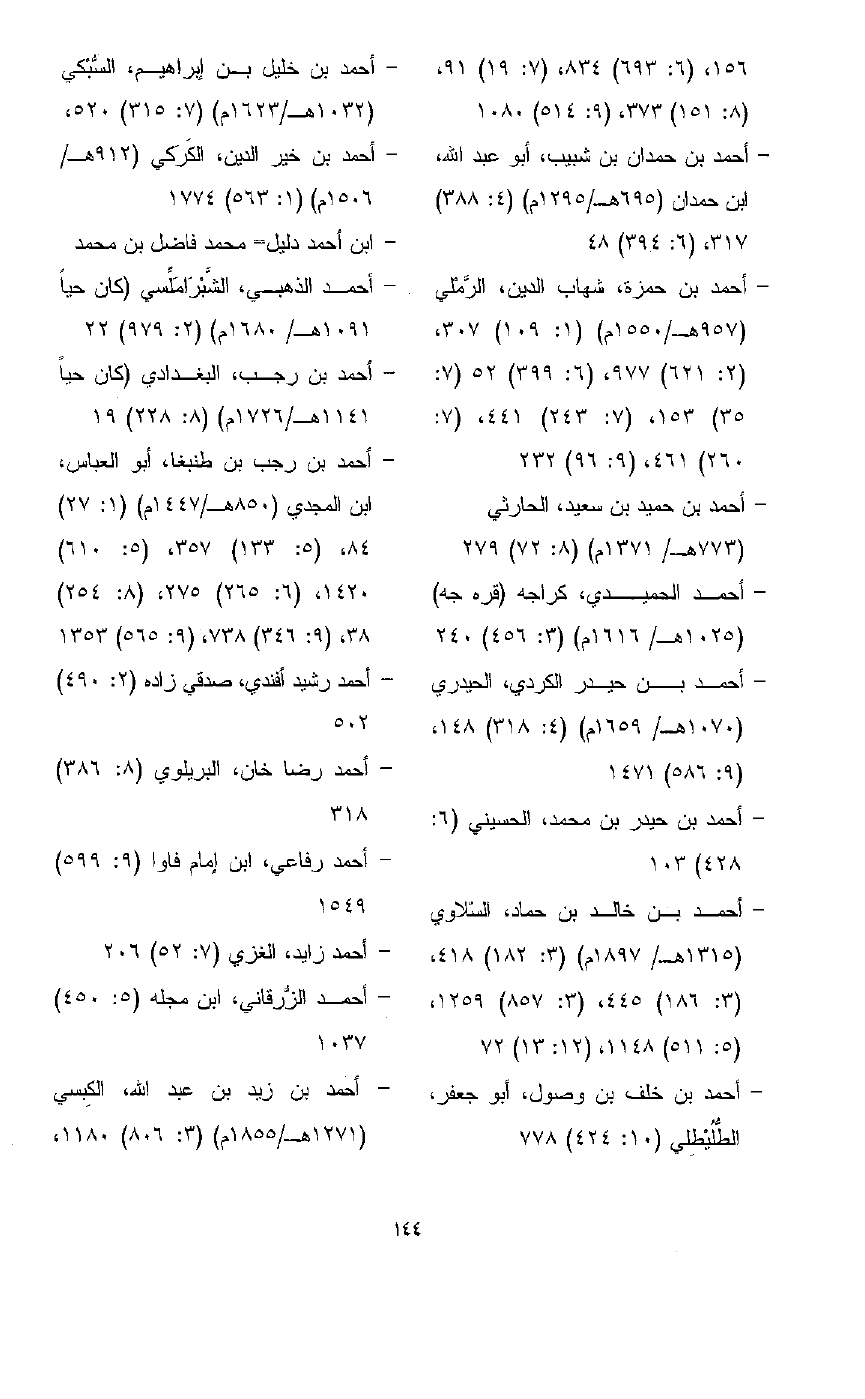 ١٥٦، (٦: ٦٩٣) ٨٣٤، (٧: ١٩) ٩١،
(٨: ١٥١) ٣٧٣، (٩: ٥١٤) ١٠٨٠
- أحمد بن حمدان بن شبيب، أبو عبد الله،
ابن حمدان (٦٩٥هـ/١٢٩٥م) (٤: ٣٨٨)
٣١٧، (٦: ٣٩٤) ٤٨
- أحمد بن حمزة، شهاب الدين، الرَّمْلي
(٩٥٧هـ/١٥٥٠م) (١: ١٠٩) ٣٠٧،
(٢: ٦٢١) ٩٧٧، (٦: ٣٩٩) ٥٢ (٧:
٣٥) ١٥٣، (٧: ٢٤٣) ٤٤١، (٧:
٢٦٠) ٤٦١، (٩: ٩٦) ٢٣٢
- أحمد بن حميد بن سعيد، الحارثي
(٧٧٣هـ/ ١٣٧١م) (٨: ٧٢) ٢٧٩
- أحمد الحميدي، كراجه (قره جه)
(١٠٢٥هـ/ ١٦١٦م) (٣: ٤٥٦) ٢٤٠
- أحمد بن حيدر الكردي، الحيدري
(١٠٧٠هـ/ ١٦٥٩م) (٤: ٣١٨) ١٤٨،
(٩: ٥٨٦) ١٤٧١
- أحمد بن حيدر بن محمد، الحسيني (٦:
٤٢٨) ١٠٣
- أحمد بن خالد بن حماد، السّلاوي
(١٣١٥هـ/ ١٨٩٧م) (٣: ١٨٢) ٤١٨،
(٣: ١٨٦) ٤٤٥، (٣: ٨٥٧) ١٢٥٩،
(٥: ٥١١) ١١٤٨، (١٢: ١٣) ٧٢
- أحمد بن خلف بن وصول، أبو جعفر،
الطُّلَيْطِلي (١٠: ٤٢٤) ٧٧٨
- أحمد بن خليل بن إبراهيم، السُّبْكي
(١٠٣٢هـ/١٦٢٣م) (٧: ٣١٥) ٥٢٠،
- أحمد بن خير الدين، الكَرَكي (٩١٢هـ/
١٥٠٦م) (١: ٥٦٣) ١٧٧٤
- ابن أحمد دليل= محمد فاضل بن محمد
- أحمد الذهبي، الشَّبْرَامَلِّسي (كان حياً
١٠٩١هـ/ ١٦٨٠م) (٢: ٩٧٩) ٢٢
- أحمد بن رجب، البغدادي (كان حياً
١١٤١هـ/١٧٢٦م) (٨: ٢٢٨) ١٩
- أحمد بن رجب بن طنبغا، أبو العباس،
ابن المجدي (٨٥٠هـ/١٤٤٧م) (١: ٢٧)
٨٤، (٥: ١٣٣) ٣٥٧، (٥: ٦١٠)
١٤٢٠، (٦: ٢٦٥) ٢٧٥، (٨: ٢٥٤)
٣٨، (٩: ٣٤٦) ٧٣٨، (٩: ٥٦٥) ١٣٥٣
- أحمد رشيد أفندي، صدقي زاده (٢: ٤٩٠)
٥٠٢
- أحمد رضا خان، البريلوي (٨: ٣٨٦)
٣١٨
- أحمد رفاعي، ابن إمام فاوا (٩: ٥٩٩)
١٥٤٩
- أحمد زايد، الغزي (٧: ٥٢) ٢٠٦
- أحمد الزُّرقاني، ابن مجله (٥: ٤٥٠)
١٠٣٧
- أحمد بن زيد بن عبد الله، الكِبسي
(١٢٧١هـ/١٨٥٥م) (٣: ٨٠٦) ١١٨٠،
١٤٤